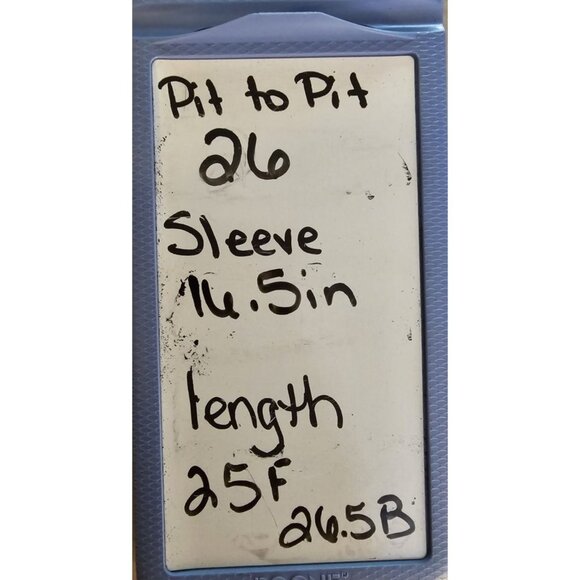 Pit to Pit
26
Sleeve
16.5in
length
25F
26.5B